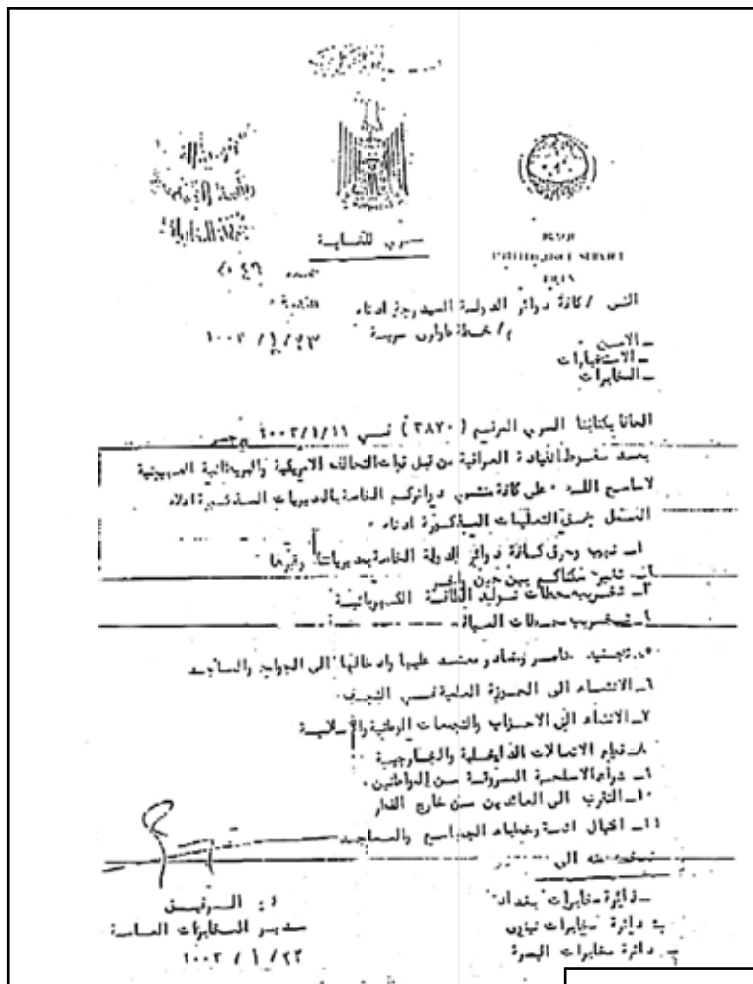 سري للغاية
INTELLIGENCE SERVICE
العدد ٤٠٤٦
الى / كافة دوائر الدولة المدرجة ادناه
م/ خطة طوارئ سرية
١٠٠٣/١/٢٣
ـ الامن
ـ الاستخبارات
ـ المخابرات
الحاقا بكتابنا السري المرقم ( ٣٨٧٠ ) في ١٠٠٣/١/١١
بعد سقوط القيادة العراقية من قبل قوات التحالف الامريكية والبريطانية الصهيونية
لاسامح الله ٠ على كافة منتسبي دوائركم الخاصة بالمديريات المذكورة اعلاه
العمل التعليمات المذكورة ادناه ٠
١ـ نهب وحرق كافة دوائر الدولة الخاصة بمديرياتنا وغيرها
٢ـ تغيير سكناكم بين حين وآخر
٣ـ تخريب محطات توليد الطاقة الكهربائية
٤ـ تخريب محطات المياه
٥ـ تجنيد عناصر معتمد عليها وادخالها الى الجوامع والمساجد
٦ـ الانتماء الى الحوزة العلمية في النجف ٠
٧ـ الانتماء الى الاحزاب والتجمعات الوطنية والاسلامية
٨ـ قطع الاتصالات الداخلية والخارجية
٩ـ شراء الاسلحة المسروقة من المواطنين ٠
١٠ـ التقرب الى العائدين من خارج القطر
١١ـ اغتيال ائمة وخطباء الجوامع والمساجد
نسخة منه الى
ـ دائرة مخابرات بغداد
ـ دائرة مخابرات نينوى
ـ دائرة مخابرات البصرة
الرفيق
مدير المخابرات العامة
١٠٠٣ / ١ / ٢٣